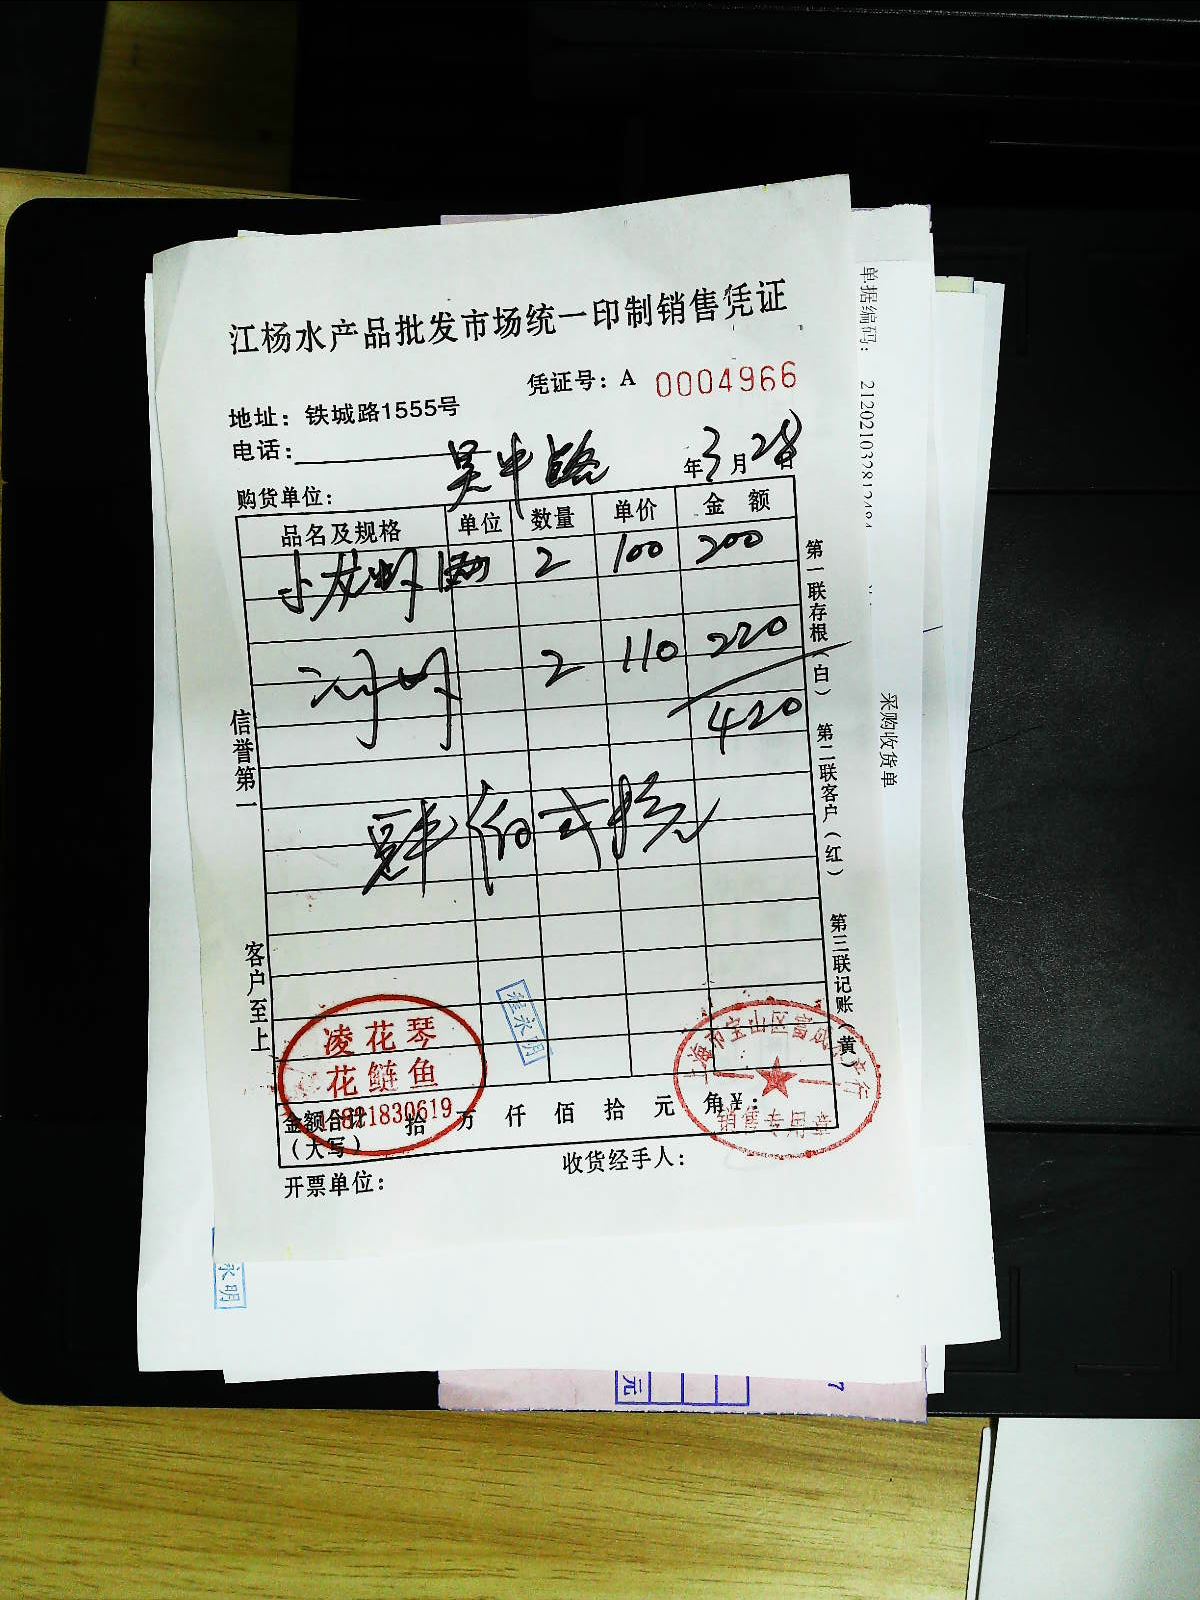 江杨水产品批发市场统一印制销售凭证
凭证号：A 0004966
地址：铁城路1555号
电话：
购货单位： 吴中路 年3月28日
品名及规格 单位 数量 单价 金额
小龙虾 2 100 200
河虾 2 110 220
420
肆佰贰拾元
金额合计 拾 万 仟 佰 拾 元 角 ¥：
（大写）
开票单位：
收货经手人：
信誉第一
客户至上
第一联存根（白） 第二联客户（红） 第三联记账（黄）
凌花琴
花鲢鱼
程永明
销售专用章
单据编码：
采购收货单
永明
元
7